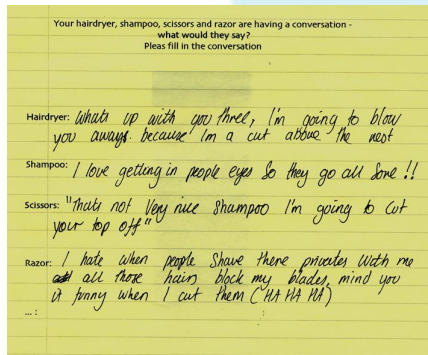 Your hairdryer, shampoo, scissors and razor are having a conversation -
what would they say?
Pleas fill in the conversation
Hairdryer: Whats up with you three, I'm going to blow
you away. because Im a cut above the rest
Shampoo: I love getting in people eyes So they go all Sore !!
Scissors: "Thats not Very nice Shampoo I'm going to Cut
your top off"
Razor: I hate when people Shave there privates With me
all those hairs block my blades, mind you
it funny when I cut them (HA HA HA)
... :